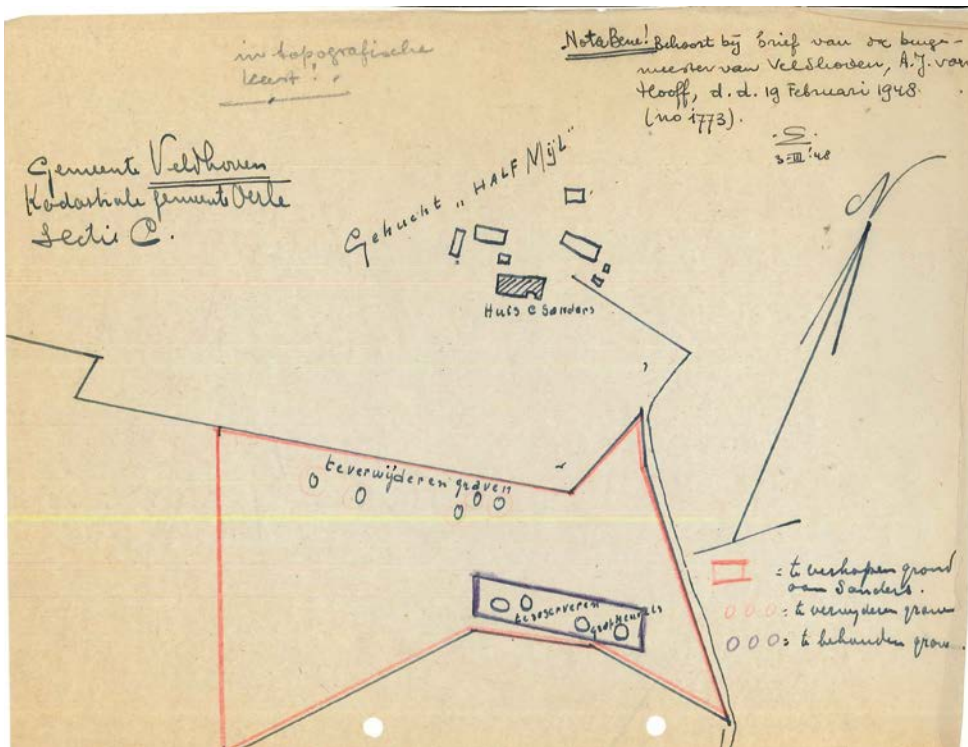 in topografische
kaart!
Nota Bene! Behoort bij brief van de burge-
meester van Veldhoven, A.J. van
Hooff, d.d. 19 Februari 1948.
(no 1773).
3-III-'48
Gemeente Veldhoven
Kadastrale gemeente Oerle
Sectie C.
Gehucht „HALF Mijl"
Huis C Sanders
te verwijderen graven
te reserveren
grafheuvels
= te verkopen grond
aan Sanders.
= te verwijderen graven
= te behouden graven